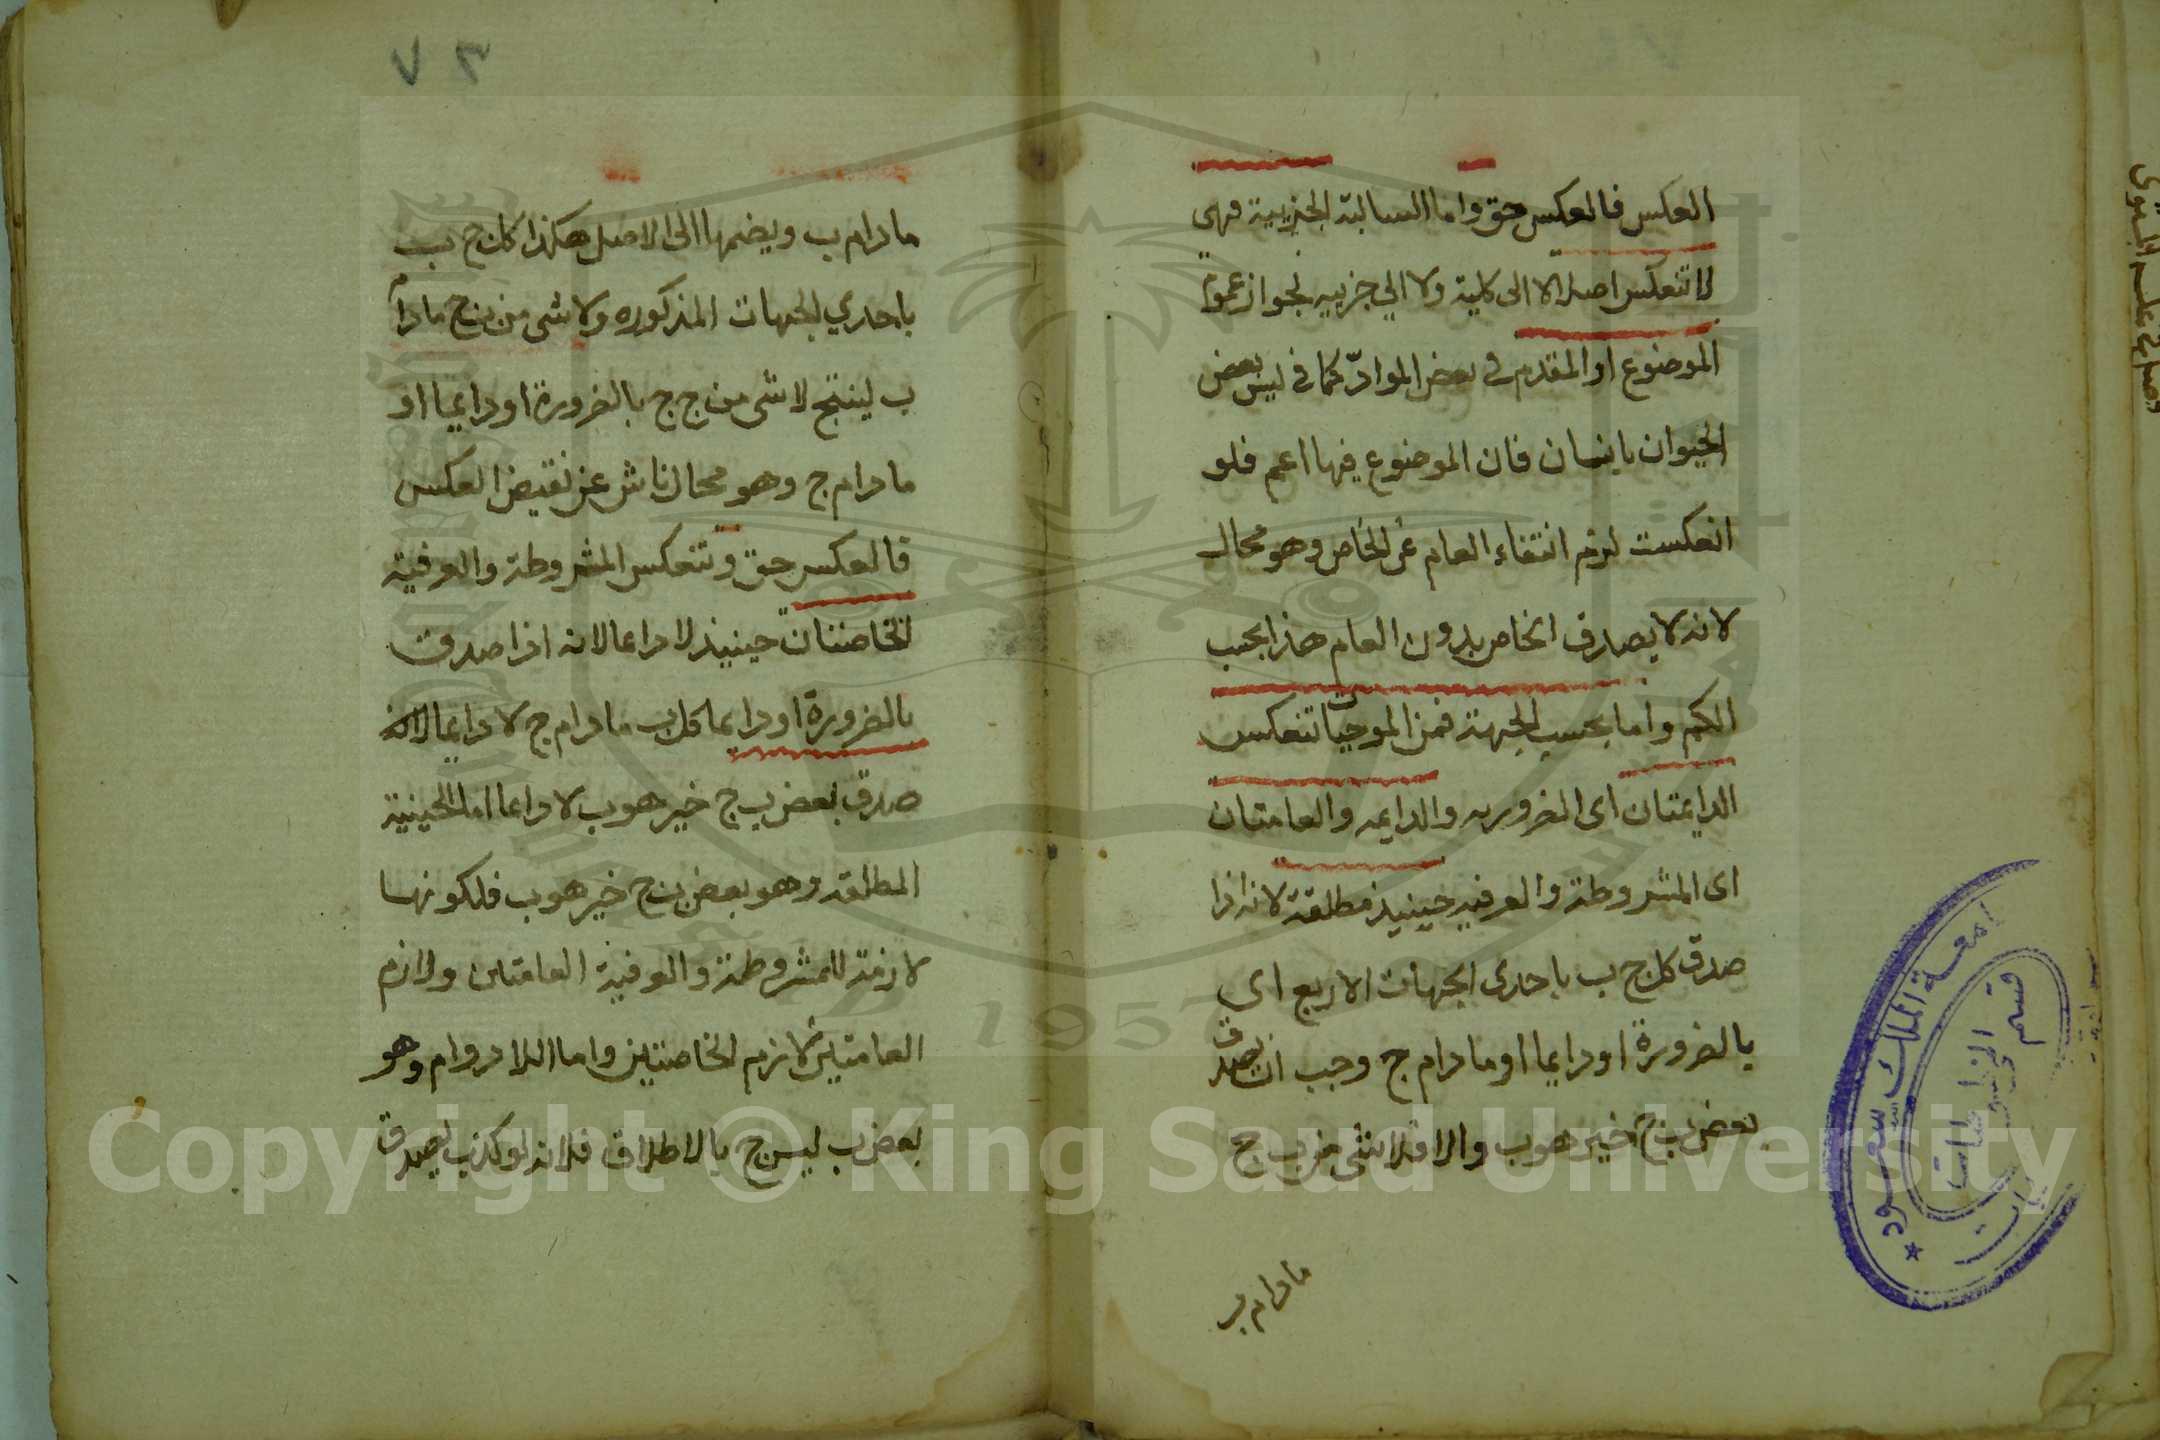 العكس فالعكس حق واما السالبة الجزيية فهي
لا تنعكس اصلا لا الى كلية ولا الي جزييه لجواز عموم
الموضوع او المقدم في بعض المواد كما في ليس بعض
الحيوان بانسان فان الموضوع فيها اعم فلو
انعكست لزم انتفاء العام عن الخاص وهو محال
لانه لا يصدق الخاص بدون العام هذا بحسب
الكم واما بحسب الجهة فمن الموجبات تنعكس
الدايمتان اى الضروريه والدايمه والعامتان
اى المشروطة والعرفيه حينيذ مطلقة لانه اذا
صدق كل ج ب باحدى الجهات الاربع اى
بالضرورة او دايما او مادام ج وجب ان يصدق
بعض ب ج حين هو ب والا فلا شى من ب ج
مادام ب
٧٣
مادام ب ويضمها الى الاصل هكذا كل ج ب
باحدي الجهات المذكوره ولا شى من ب ج مادام
ب لينتج لا شى من ج ج بالضرورة او دايما او
مادام ج وهو محال ناش عن نقيض العكس
فالعكس حق وتنعكس المشروطة والعرفية
الخاصتان حينيذ لا دايما لانه اذا صدق
بالضرورة او دايما كل ب مادام ج لا دايما لانه
صدق بعض ب ج حين هو ب لا دايما اما الحينية
المطلقه وهو بعض ب ج حين هو ب فلكونها
لازمة للمشروطة والعرفية العامتين ولازم
العامتين لازم الخاصتين واما اللا دوام وهو
بعض ب ليس ج بالاطلاق فلانه لو كذب يصدق
جامعة الملك سعود
قسم المخطوطات
Copyright © King Saud University
1957